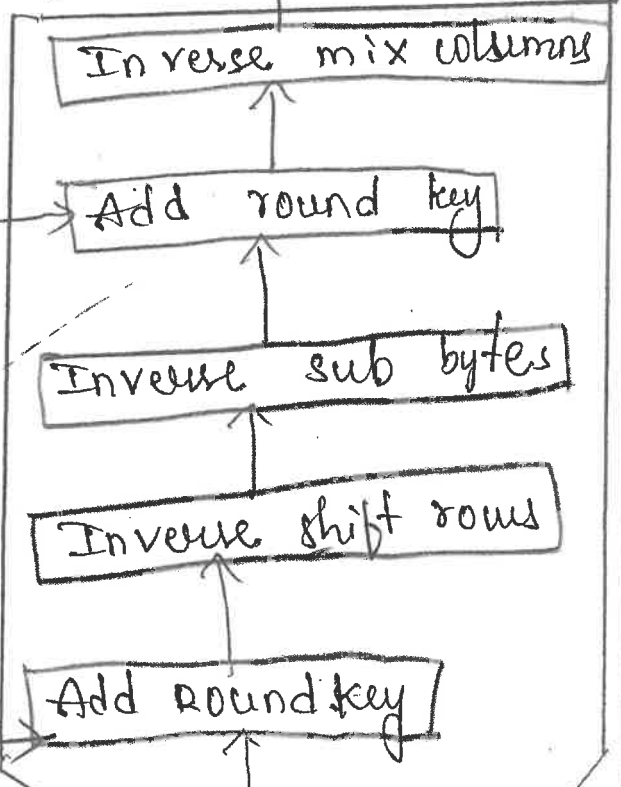 Inverse mix columns
Add round key
Inverse sub bytes
Inverse shift rows
Add Round key